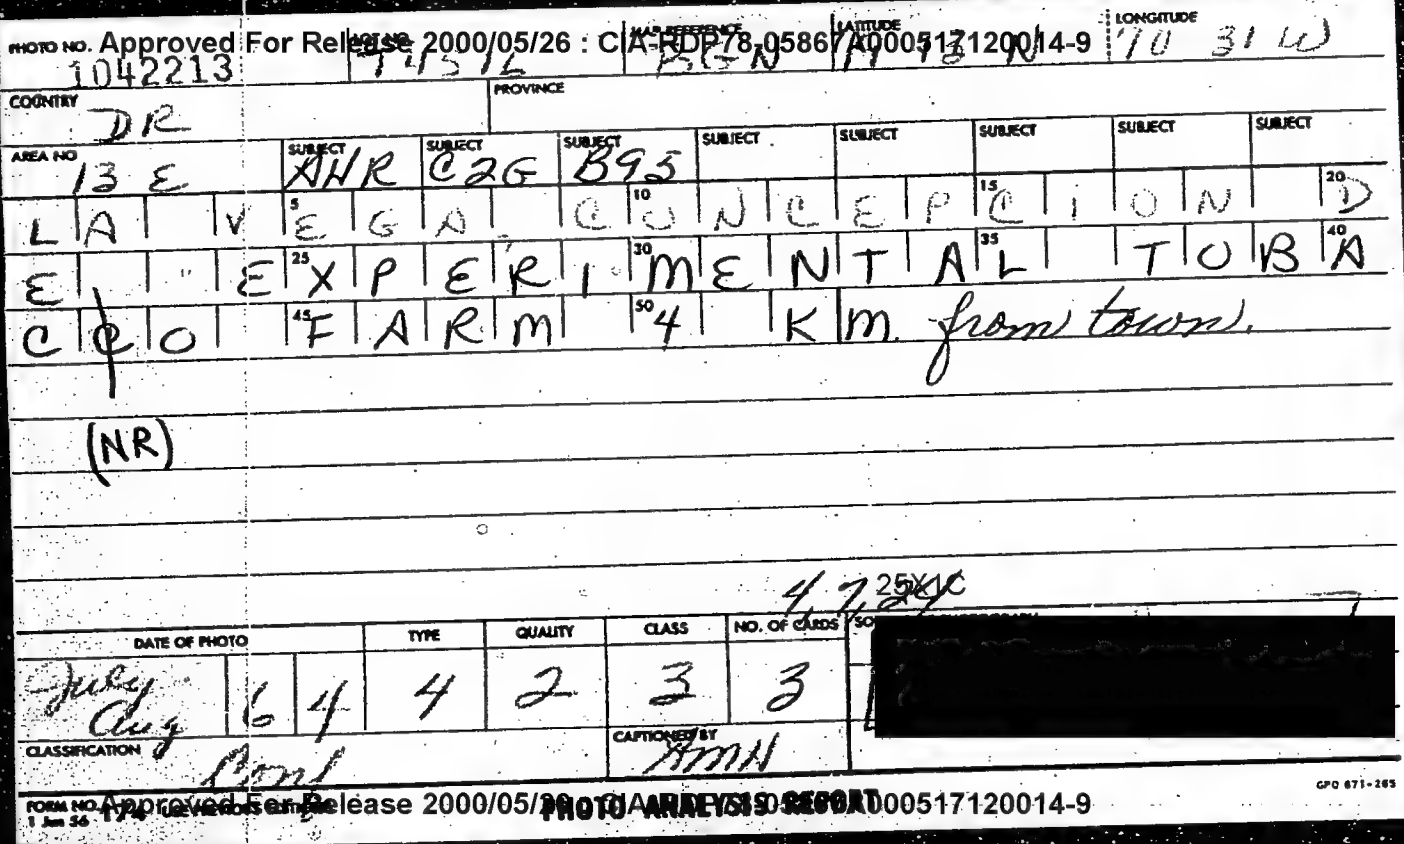 PHOTO NO. Approved For Release 2000/05/26 : CIA-RDP78-05867A000517120014-9
1042213 LOT NO. MAP REFERENCE BGN LATITUDE N LONGITUDE 70 31 W
COUNTRY DR PROVINCE
AREA NO 13 E SUBJECT AHR SUBJECT C2G SUBJECT B95 SUBJECT SUBJECT SUBJECT SUBJECT SUBJECT
5 10 15 20
LA VEGA. CONCEPCION D
25 30 35 40
E " EXPERIMENTAL TOBA
45 50
CCO FARM 4 KM. from town.
(NR)
4, 7, 25X1C
DATE OF PHOTO TYPE QUALITY CLASS NO. OF CARDS
July Aug 64 4 2 3 3
CLASSIFICATION Conf CAPTIONED BY AMH
GPO 871-265
FORM NO. Approved For Release 2000/05/26 : CIA-RDP78-05867A000517120014-9
1 Jun 56 PHOTO ANALYSIS REPORT